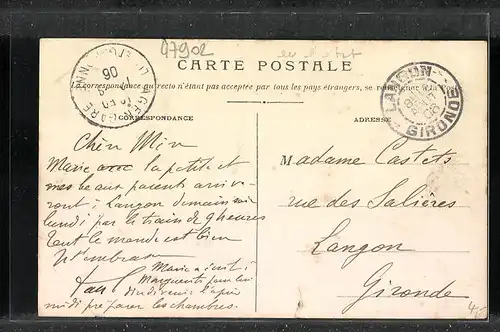 47902
CARTE POSTALE
La correspondance au recto n'étant pas acceptée par tous les pays étrangers, se renseigner à la Poste
CORRESPONDANCE
ADRESSE
LANGON
GIRONDE
Chère
Marie avec la petite et
mes beaux parents arrive-
ront à Langon demain
lundi par le train de 9 heures
Tout le monde est bien
Marie a écrit à
Marguerite pour lui
dire de venir l'après
midi préparer les chambres.
Madame Castets
rue des Salières
Langon
Gironde